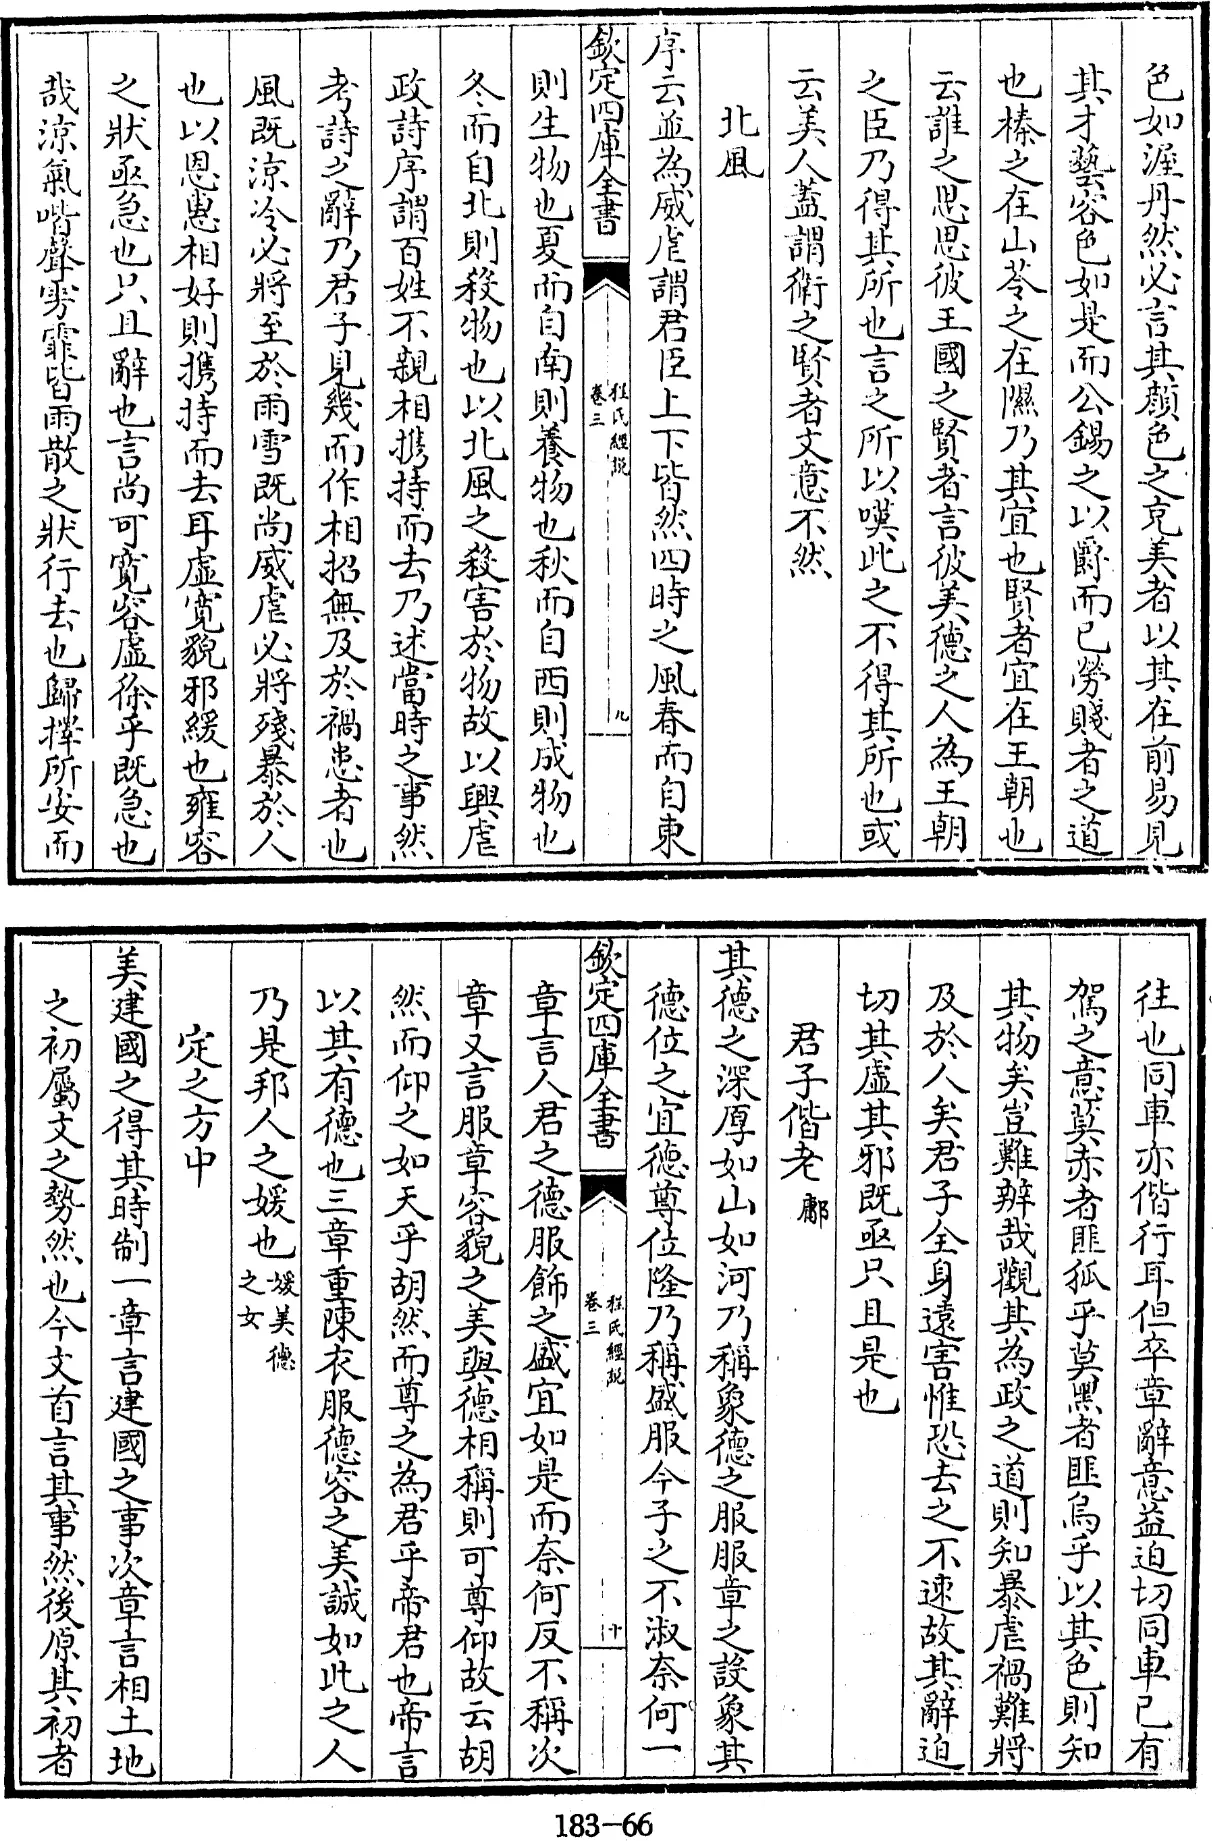 色如渥丹然必言其顔色之克美者以其在前易見
其才藝容色如是而公錫之以爵而已勞賤者之道
也榛之在山苓之在隰乃其宜也賢者宜在王朝也
云誰之思思彼王國之賢者言彼美德之人為王朝
之臣乃得其所也言之所以嘆此之不得其所也或
云美人蓋謂衛之賢者文意不然
北風
序云並為威虐謂君臣上下皆然四時之風春而自東
欽定四庫全書
程氏經說
卷三
九
則生物也夏而自南則養物也秋而自西則成物也
冬而自北則殺物也以北風之殺害於物故以興虐
政詩序謂百姓不親相攜持而去乃述當時之事然
考詩之辭乃君子見幾而作相招無及於禍患者也
風既涼冷必將至於雨雪既尚威虐必將殘暴於人
也以恩惠相好則攜持而去耳虛寛貌邪緩也雍容
之狀亟急也只且辭也言尚可寛容虛徐乎既急也
哉涼氣喈聲雱霏皆雨散之狀行去也歸擇所安而
往也同車亦偕行耳但卒章辭意益迫切同車已有
駕之意莫赤者匪狐乎莫黑者匪烏乎以其色則知
其物矣豈難辨哉觀其為政之道則知暴虐禍難將
及於人矣君子全身遠害惟恐去之不速故其辭迫
切其虛其邪既亟只且是也
君子偕老鄘
其德之深厚如山如河乃稱象德之服服章之設象其
德位之宜德尊位隆乃稱盛服今子之不淑奈何一
欽定四庫全書
程氏經說
卷三
十
章言人君之德服飾之盛宜如是而奈何反不稱次
章又言服章容貌之美與德相稱則可尊仰故云胡
然而仰之如天乎胡然而尊之為君乎帝君也帝言
以其有德也三章重陳衣服德容之美誠如此之人
乃是邦人之媛也媛美德之女
定之方中
美建國之得其時制一章言建國之事次章言相土地
之初屬文之勢然也今文首言其事然後原其初者
183-66